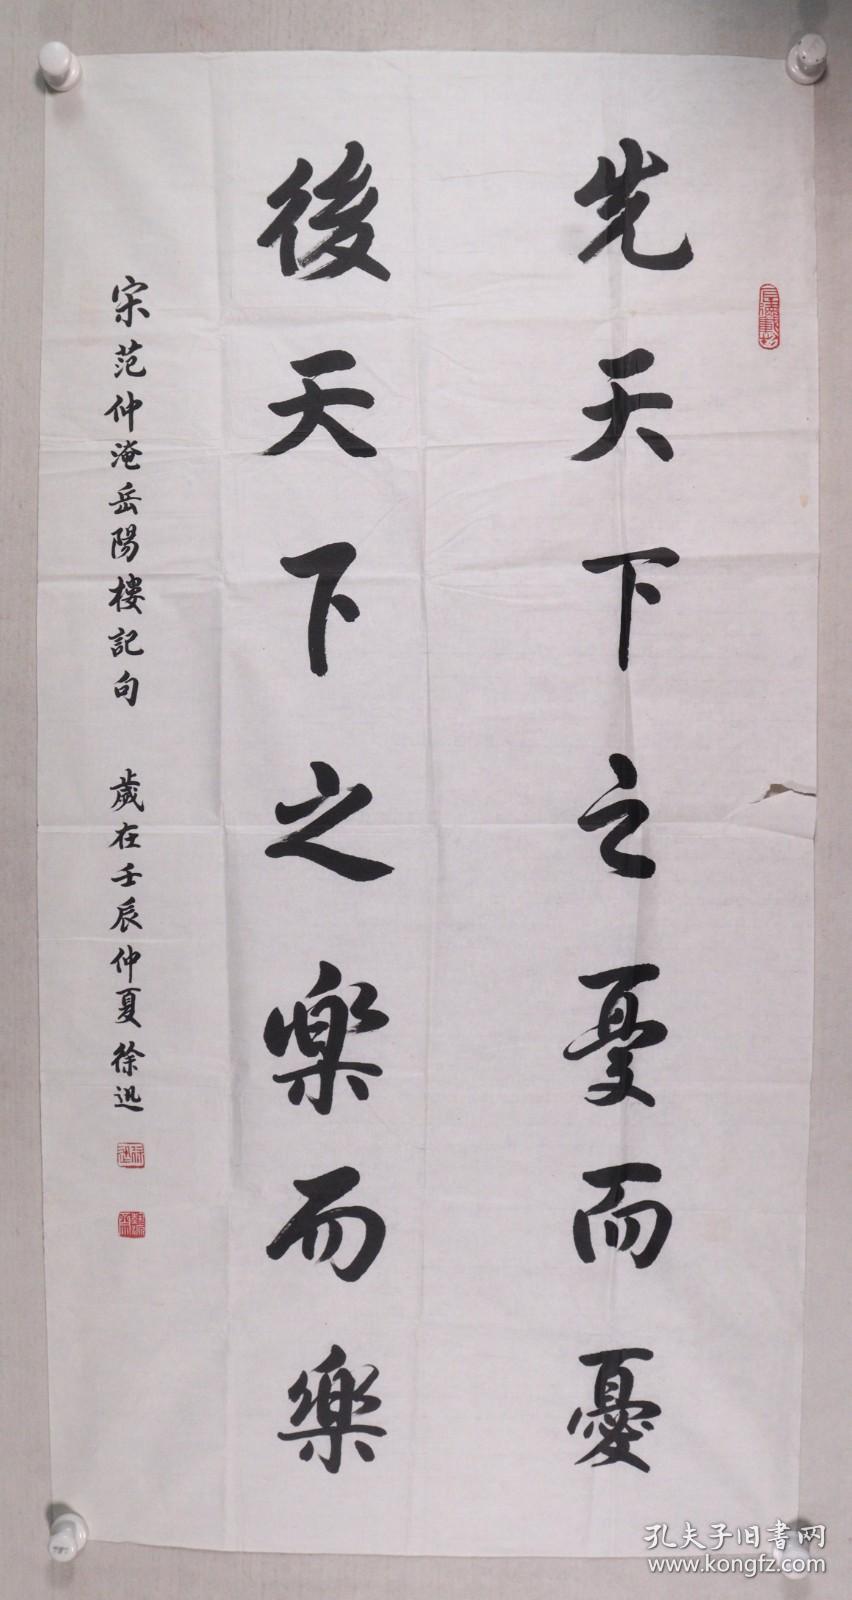 先天下之憂而憂
後天下之樂而樂
宋范仲淹岳陽樓記句 歲在壬辰仲夏徐迅
厚德載物
孔夫子旧书网
www.kongfz.com